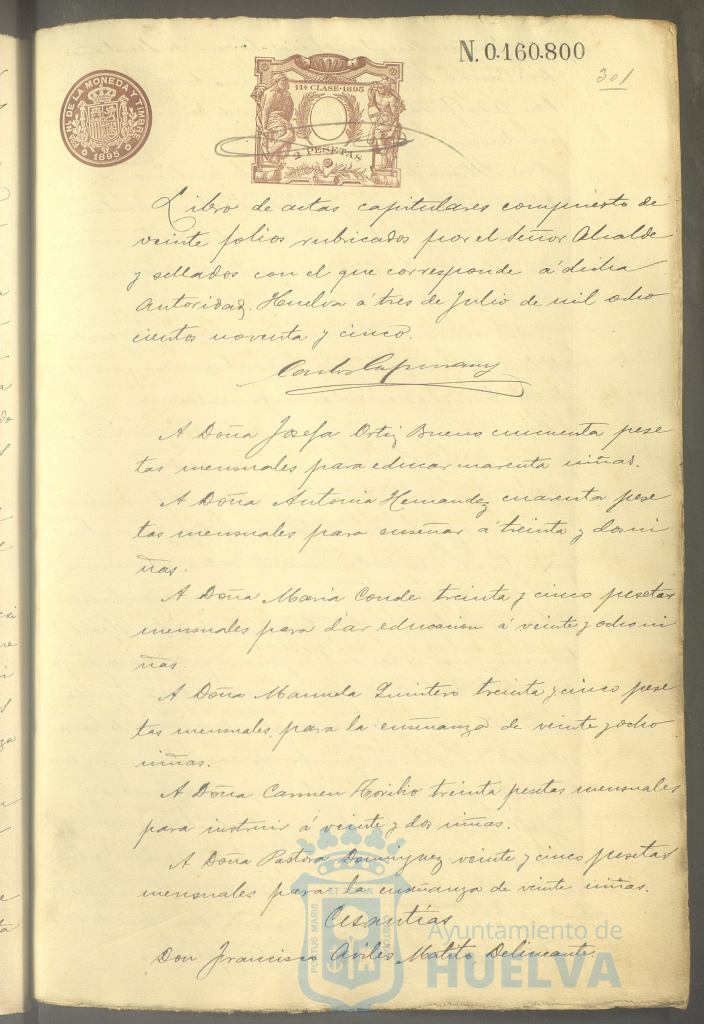 N. 0.160.800
301
FAB. NL. DE LA MONEDA Y TIMBRE
1895
11ª CLASE·1895
2 PESETAS
Libro de actas capitulares compuesto de
veinte folios rubricados por el Señor Alcalde
y sellados con el que corresponde á dicha
Autoridad. Huelva á tres de Julio de mil ocho
cientos noventa y cinco.
A Doña Josefa Ortiz Bueno cincuenta pese
tas mensuales para educar cuarenta niñas.
A Doña Antonia Hernandez cuarenta pese
tas mensuales para enseñar á treinta y dos ni
ñas.
A Doña Maria Conde treinta y cinco pesetas
mensuales para dar educacion á veinte y ocho ni
ñas.
A Doña Manuela Quintero treinta y cinco pese
tas mensuales para la enseñanza de veinte y ocho
niñas.
A Doña Carmen Toribio treinta pesetas mensuales
para instruir á veinte y dos niñas.
A Doña Pastora Dominguez veinte y cinco pesetas
mensuales para la enseñanza de veinte niñas.
Cesantías
Don Francisco Aviles Matito Delineante.
PORTUS MARIS ET TERRAE CUSTODIA
Ayuntamiento de
HUELVA